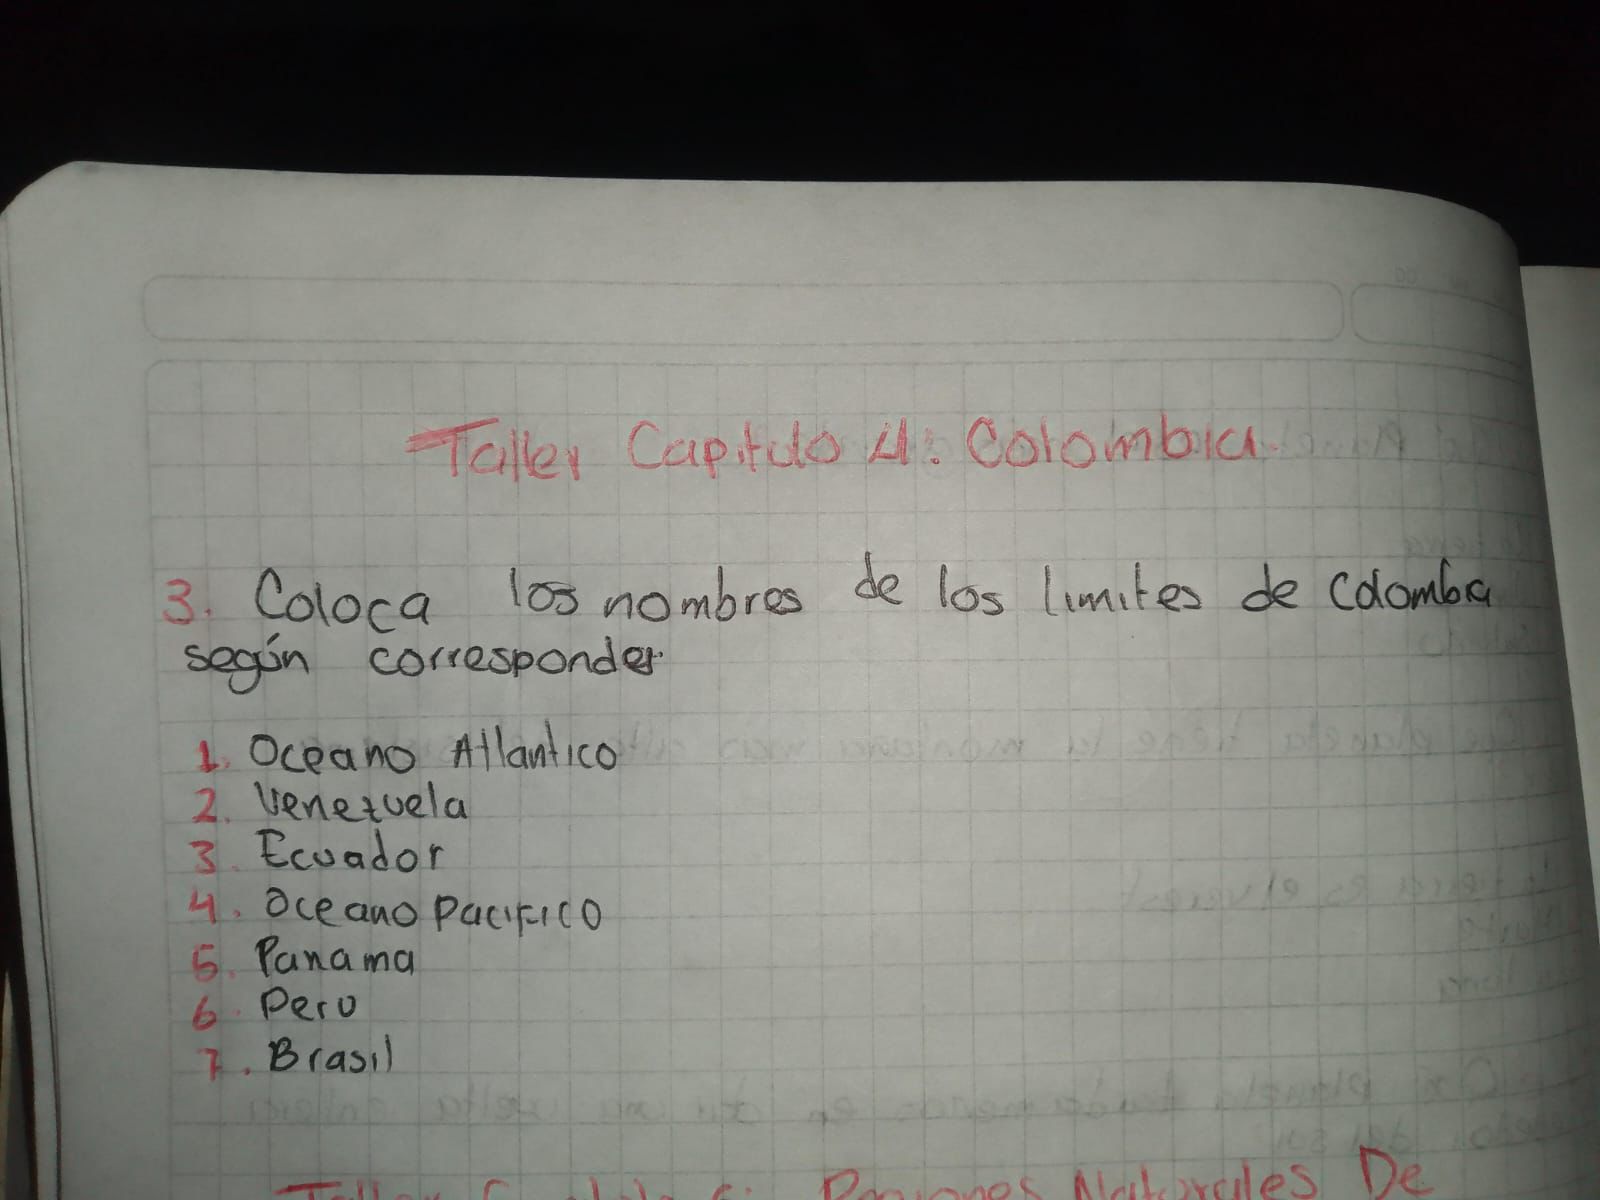 Taller Capitulo 4: Colombia.
3. Coloca los nombres de los limites de Colombia
según corresponder
1. Oceano Atlantico
2. Venezuela
3. Ecuador
4. Oceano Pacifico
5. Panama
6. Peru
7. Brasil
Taller Regiones Naturales De